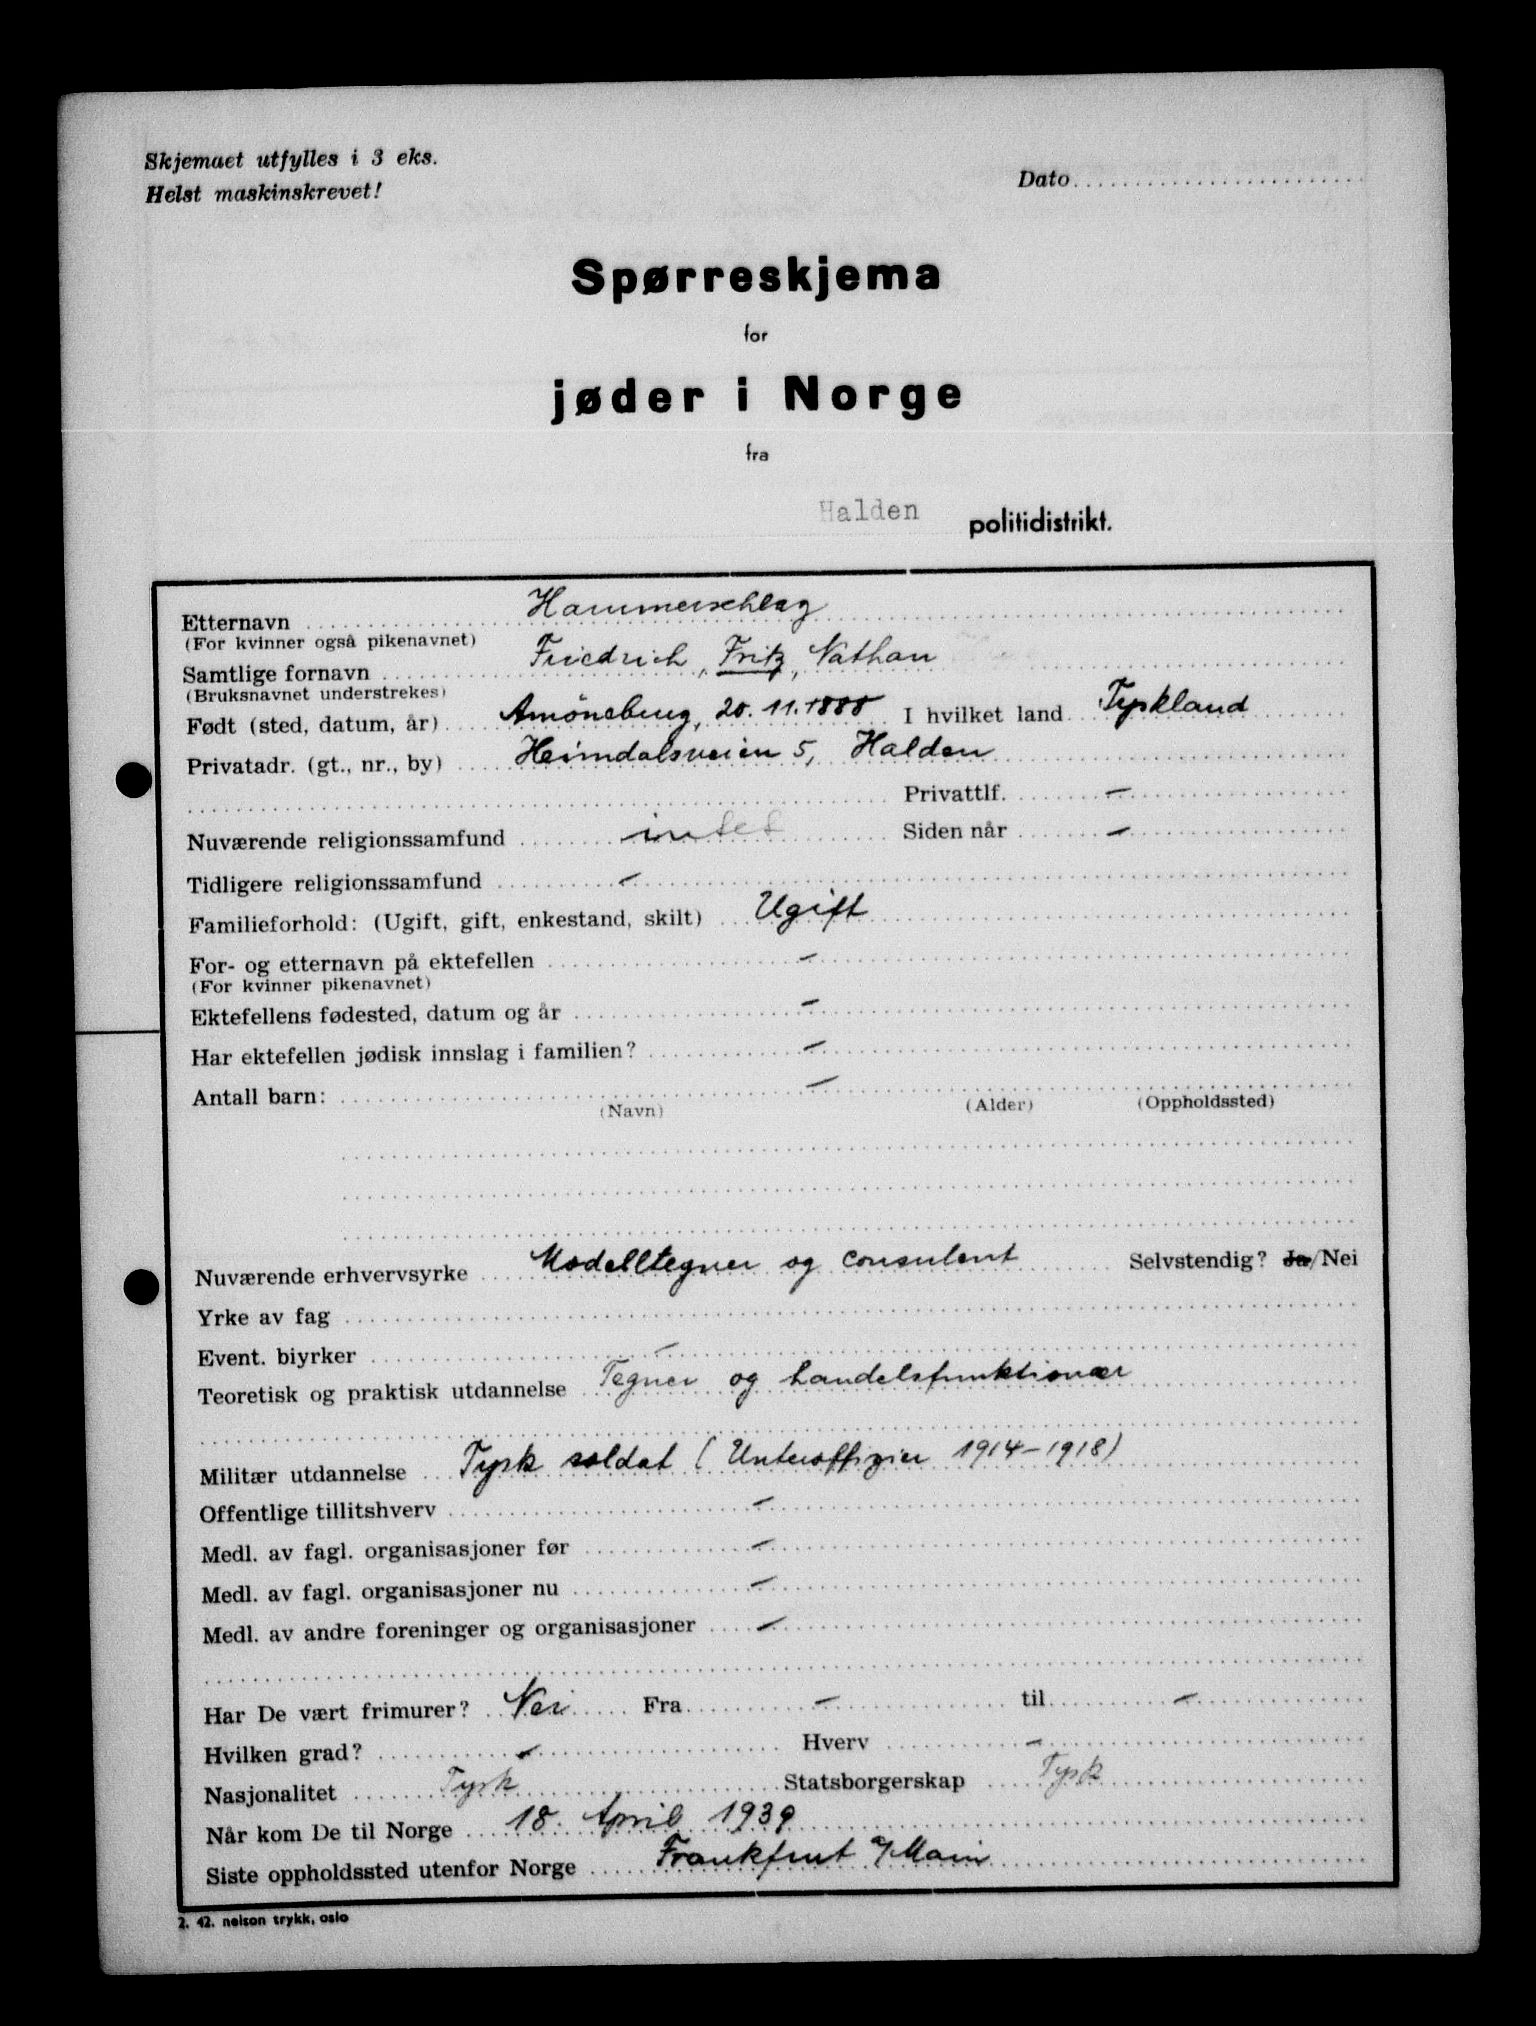 Skjemaet utfylles i 3 eks.
Helst maskinskrevet!
Dato
Spørreskjema
for
jøder i Norge
fra
Halden politidistrikt.
Etternavn Hammerschlag
(For kvinner også pikenavnet)
Samtlige fornavn Friedrich, Fritz, Nathan
(Bruksnavnet understrekes)
Født (sted, datum, år) Amöneburg, 20.11.1888 I hvilket land Tyskland
Privatadr. (gt., nr., by) Heimdalsveien 5, Halden
Privattlf. —
Nuværende religionssamfund intet Siden når —
Tidligere religionssamfund —
Familieforhold: (Ugift, gift, enkestand, skilt) Ugift
For- og etternavn på ektefellen —
(For kvinner pikenavnet)
Ektefellens fødested, datum og år —
Har ektefellen jødisk innslag i familien? —
Antall barn: —
(Navn) (Alder) (Oppholdssted)
Nuværende erhvervsyrke Modelltegner og consulent Selvstendig? Ja/Nei
Yrke av fag
Event. biyrker —
Teoretisk og praktisk utdannelse Tegner og handelsfunktionær
Militær utdannelse Tysk soldat (Unteroffizier 1914-1918)
Offentlige tillitshverv —
Medl. av fagl. organisasjoner før —
Medl. av fagl. organisasjoner nu —
Medl. av andre foreninger og organisasjoner —
Har De vært frimurer? Nei Fra — til —
Hvilken grad? — Hverv —
Nasjonalitet Tysk Statsborgerskap Tysk
Når kom De til Norge 18. April 1939
Siste oppholdssted utenfor Norge Frankfurt a/Main
2. 42. nelson trykk, oslo